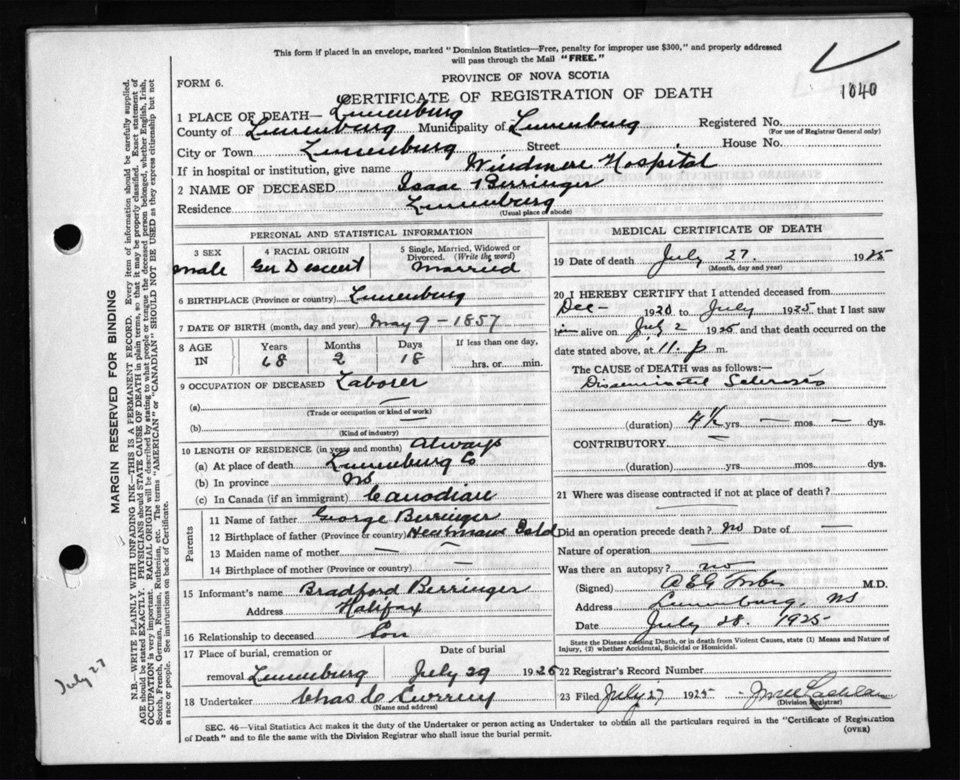 This form if placed in an envelope, marked "Dominion Statistics—Free, penalty for improper use $300," and properly addressed
will pass through the Mail "FREE."
PROVINCE OF NOVA SCOTIA
FORM 6.
CERTIFICATE OF REGISTRATION OF DEATH
1040
1 PLACE OF DEATH— Lunenburg
County of Lunenburg Municipality of Lunenburg Registered No.
(For use of Registrar General only)
City or Town Lunenburg Street House No.
If in hospital or institution, give name Hospital
2 NAME OF DECEASED Isaac Berringer
Residence Lunenburg
(Usual place of abode)
PERSONAL AND STATISTICAL INFORMATION
3 SEX 4 RACIAL ORIGIN 5 Single, Married, Widowed or
Divorced. (Write the word)
male Ger Descent Married
6 BIRTHPLACE (Province or country) Lunenburg
7 DATE OF BIRTH (month, day and year) May 9 - 1857
8 AGE IN Years Months Days If less than one day,
68 2 18 hrs. or min.
9 OCCUPATION OF DECEASED Laborer
(a)
(Trade or occupation or kind of work)
(b)
(Kind of industry)
10 LENGTH OF RESIDENCE (in years and months) Always
(a) At place of death Lunenburg Co
(b) In province NS
(c) In Canada (if an immigrant) Canadian
Parents
11 Name of father George Berringer
12 Birthplace of father (Province or country)
13 Maiden name of mother —
14 Birthplace of mother (Province or country) —
15 Informant's name Bradford Berringer
Address Halifax
16 Relationship to deceased Son
17 Place of burial, cremation or Date of burial
removal Lunenburg July 29 1925
18 Undertaker Chas
(Name and address)
MEDICAL CERTIFICATE OF DEATH
19 Date of death July 27. 1925
(Month, day and year)
20 I HEREBY CERTIFY that I attended deceased from
Dec— 1920 to July 1925 that I last saw
him alive on July 2 1925 and that death occurred on the
date stated above, at 11. p m.
The CAUSE OF DEATH was as follows:
Disseminated Sclerosis
(duration) 4½ yrs. — mos. — dys.
CONTRIBUTORY
(duration) yrs. mos. dys.
21 Where was disease contracted if not at place of death?
Did an operation precede death? No Date of —
Nature of operation
Was there an autopsy? no
(Signed) M.D.
Address Lunenburg, NS
Date July 28. 1925
State the Disease causing Death, or in death from Violent Causes, state (1) Means and Nature of
Injury, (2) whether Accidental, Suicidal or Homicidal.
22 Registrar's Record Number
23 Filed July 27 1925
(Division Registrar)
SEC. 46—Vital Statistics Act makes it the duty of the Undertaker or person acting as Undertaker to obtain all the particulars required in the "Certificate of Registration
of Death" and to file the same with the Division Registrar who shall issue the burial permit.
(OVER)
MARGIN RESERVED FOR BINDING
N.B.—WRITE PLAINLY WITH UNFADING INK—THIS IS A PERMANENT RECORD. Every item of information should be carefully supplied.
AGE should be stated EXACTLY. PHYSICIANS should STATE CAUSE OF DEATH in plain terms, so that it may be properly classified. Exact statement of
OCCUPATION is very important. RACIAL ORIGIN will be described by stating to what people or tongue the deceased person belonged, whether English, Irish,
Scotch, French, German, Russian, Ruthenian, etc. The terms "AMERICAN" or "CANADIAN" SHOULD NOT BE USED as they express citizenship but not
a race or people. See instructions on back of Certificate.
July 27